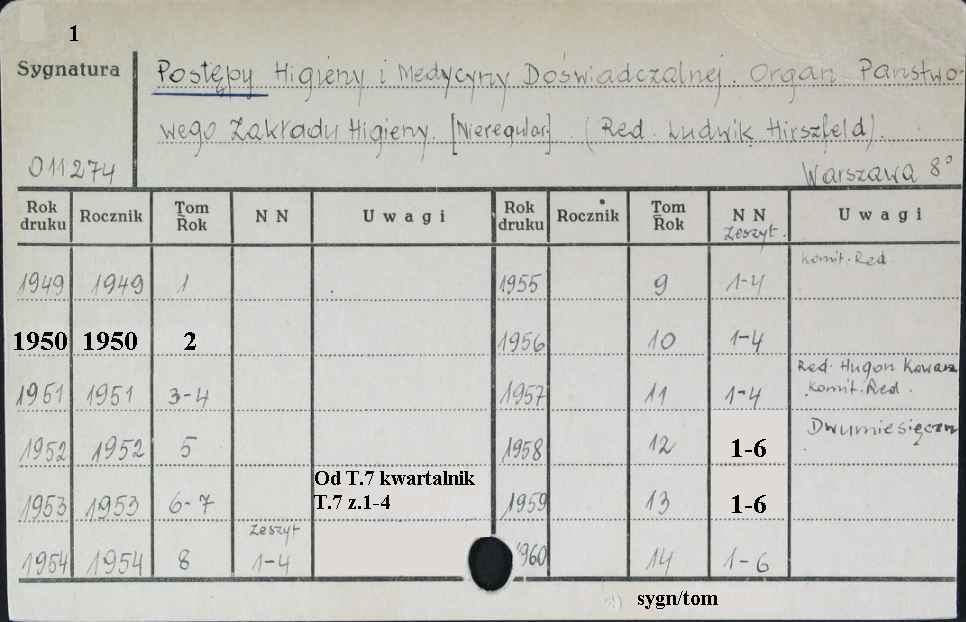 1
Sygnatura
Postępy Higieny i Medycyny Doświadczalnej. Organ Państwo-
wego Zakładu Higieny. [Nieregular.] (Red. Ludwik Hirszfeld).
011274 Warszawa 8°
Rok druku Rocznik Tom Rok NN Uwagi Rok druku Rocznik Tom Rok NN Zeszyt. Uwagi
1949 1949 1 1955 9 1-4 Komit. Red
1950 1950 2 1956 10 1-4
1951 1951 3-4 1957 11 1-4 Red. Hugon Kowarz Komit. Red.
1952 1952 5 1958 12 1-6 Dwumiesięczn
1953 1953 6-7 Od T.7 kwartalnik T.7 z.1-4 1959 13 1-6
1954 1954 8 Zeszyt 1-4 1960 14 1-6
sygn/tom